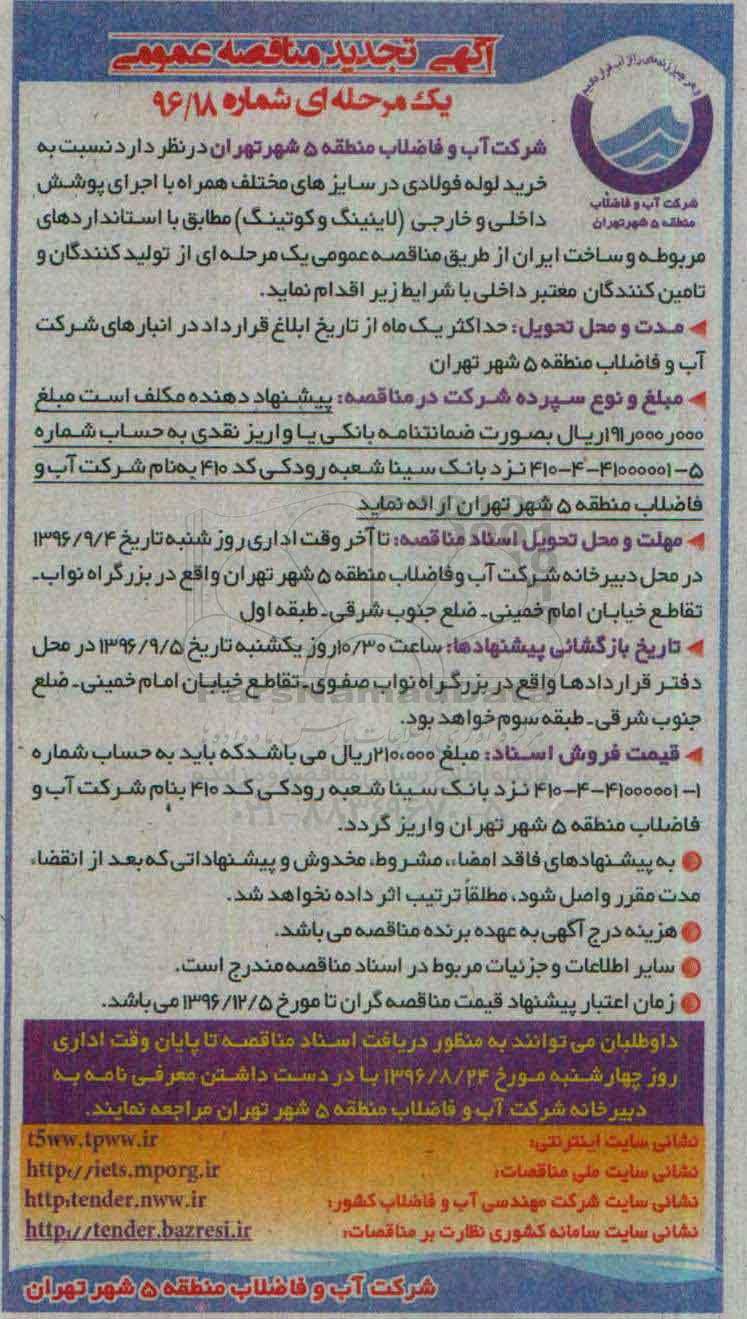 آگهی تجدید مناقصه عمومی
یک مرحله ای شماره ۹۶/۱۸
شرکت آب و فاضلاب
منطقه ۵ شهر تهران
شرکت آب و فاضلاب منطقه ۵ شهر تهران در نظر دارد نسبت به
خرید لوله فولادی در سایز های مختلف همراه با اجرای پوشش
داخلی و خارجی (لاینینگ و کوتینگ) مطابق با استانداردهای
مربوطه و ساخت ایران از طریق مناقصه عمومی یک مرحله ای از تولید کنندگان و
تامین کنندگان معتبر داخلی با شرایط زیر اقدام نماید.
مدت و محل تحویل: حداکثر یک ماه از تاریخ ابلاغ قرارداد در انبارهای شرکت
آب و فاضلاب منطقه ۵ شهر تهران
مبلغ و نوع سپرده شرکت در مناقصه: پیشنهاد دهنده مکلف است مبلغ
۱۹۱٫۰۰۰٫۰۰۰ ریال بصورت ضمانتنامه بانکی یا واریز نقدی به حساب شماره
۵-۴۱۰۰۰۰۰۱-۴-۴۱۰ نزد بانک سینا شعبه رودکی کد ۴۱۰ به نام شرکت آب و
فاضلاب منطقه ۵ شهر تهران ارائه نماید
مهلت و محل تحویل اسناد مناقصه: تا آخر وقت اداری روز شنبه تاریخ ۱۳۹۶/۹/۴
در محل دبیرخانه شرکت آب و فاضلاب منطقه ۵ شهر تهران واقع در بزرگراه نواب-
تقاطع خیابان امام خمینی- ضلع جنوب شرقی- طبقه اول
تاریخ بازگشائی پیشنهادها: ساعت ۱۰/۳۰ روز یکشنبه تاریخ ۱۳۹۶/۹/۵ در محل
دفتر قراردادها واقع در بزرگراه نواب صفوی- تقاطع خیابان امام خمینی- ضلع
جنوب شرقی- طبقه سوم خواهد بود.
قیمت فروش اسناد: مبلغ ۲۱۰،۰۰۰ ریال می باشد که باید به حساب شماره
۱-۴۱۰۰۰۰۰۱-۴-۴۱۰ نزد بانک سینا شعبه رودکی کد ۴۱۰ بنام شرکت آب و
فاضلاب منطقه ۵ شهر تهران واریز گردد.
به پیشنهادهای فاقد امضاء، مشروط، مخدوش و پیشنهاداتی که بعد از انقضاء
مدت مقرر واصل شود، مطلقاً ترتیب اثر داده نخواهد شد.
هزینه درج آگهی به عهده برنده مناقصه می باشد.
سایر اطلاعات و جزئیات مربوط در اسناد مناقصه مندرج است.
زمان اعتبار پیشنهاد قیمت مناقصه گران تا مورخ ۱۳۹۶/۱۲/۵ می باشد.
داوطلبان می توانند به منظور دریافت اسناد مناقصه تا پایان وقت اداری
روز چهارشنبه مورخ ۱۳۹۶/۸/۲۴ با در دست داشتن معرفی نامه به
دبیرخانه شرکت آب و فاضلاب منطقه ۵ شهر تهران مراجعه نمایند.
نشانی سایت اینترنتی: t5ww.tpww.ir
نشانی سایت ملی مناقصات: http://iets.mporg.ir
نشانی سایت شرکت مهندسی آب و فاضلاب کشور: http:tender.nww.ir
نشانی سایت سامانه کشوری نظارت بر مناقصات: http://tender.bazresi.ir
شرکت آب و فاضلاب منطقه ۵ شهر تهران